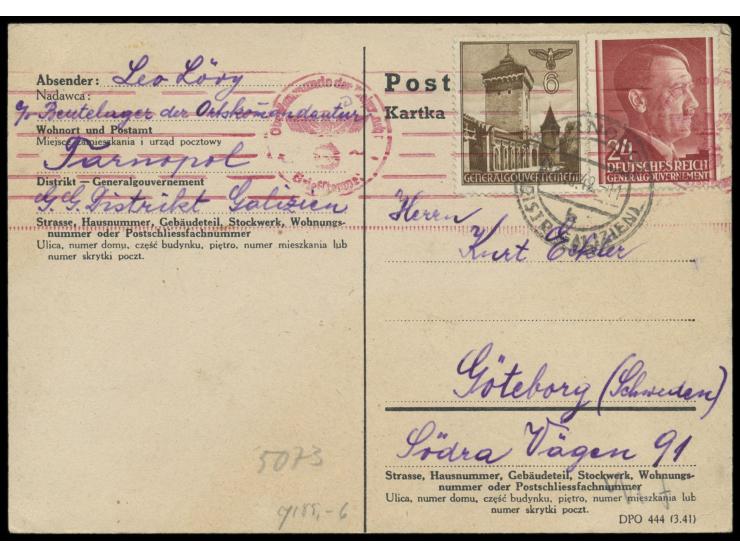 Absender: Leo Löwy
Nadawca:
c/o Beutelager der Ortskommandantur
Wohnort und Postamt
Miejsce zamieszkania i urząd pocztowy
Tarnopol
Distrikt – Generalgouvernement
G.G. Distrikt Galizien
Strasse, Hausnummer, Gebäudeteil, Stockwerk, Wohnungs-
nummer oder Postschliessfachnummer
Ulica, numer domu, część budynku, piętro, numer mieszkania lub
numer skrytki poczt.
5073
Post
Kartka
6
GENERALGOUVERNEMENT
24
DEUTSCHES REICH
GENERALGOUVERNEMENT
Herrn
Kurt
Göteborg (Schweden)
Södra Vägen 91
Strasse, Hausnummer, Gebäudeteil, Stockwerk, Wohnungs-
nummer oder Postschliessfachnummer
Ulica, numer domu, część budynku, piętro, numer mieszkania lub
numer skrytki poczt.
DPO 444 (3.41)